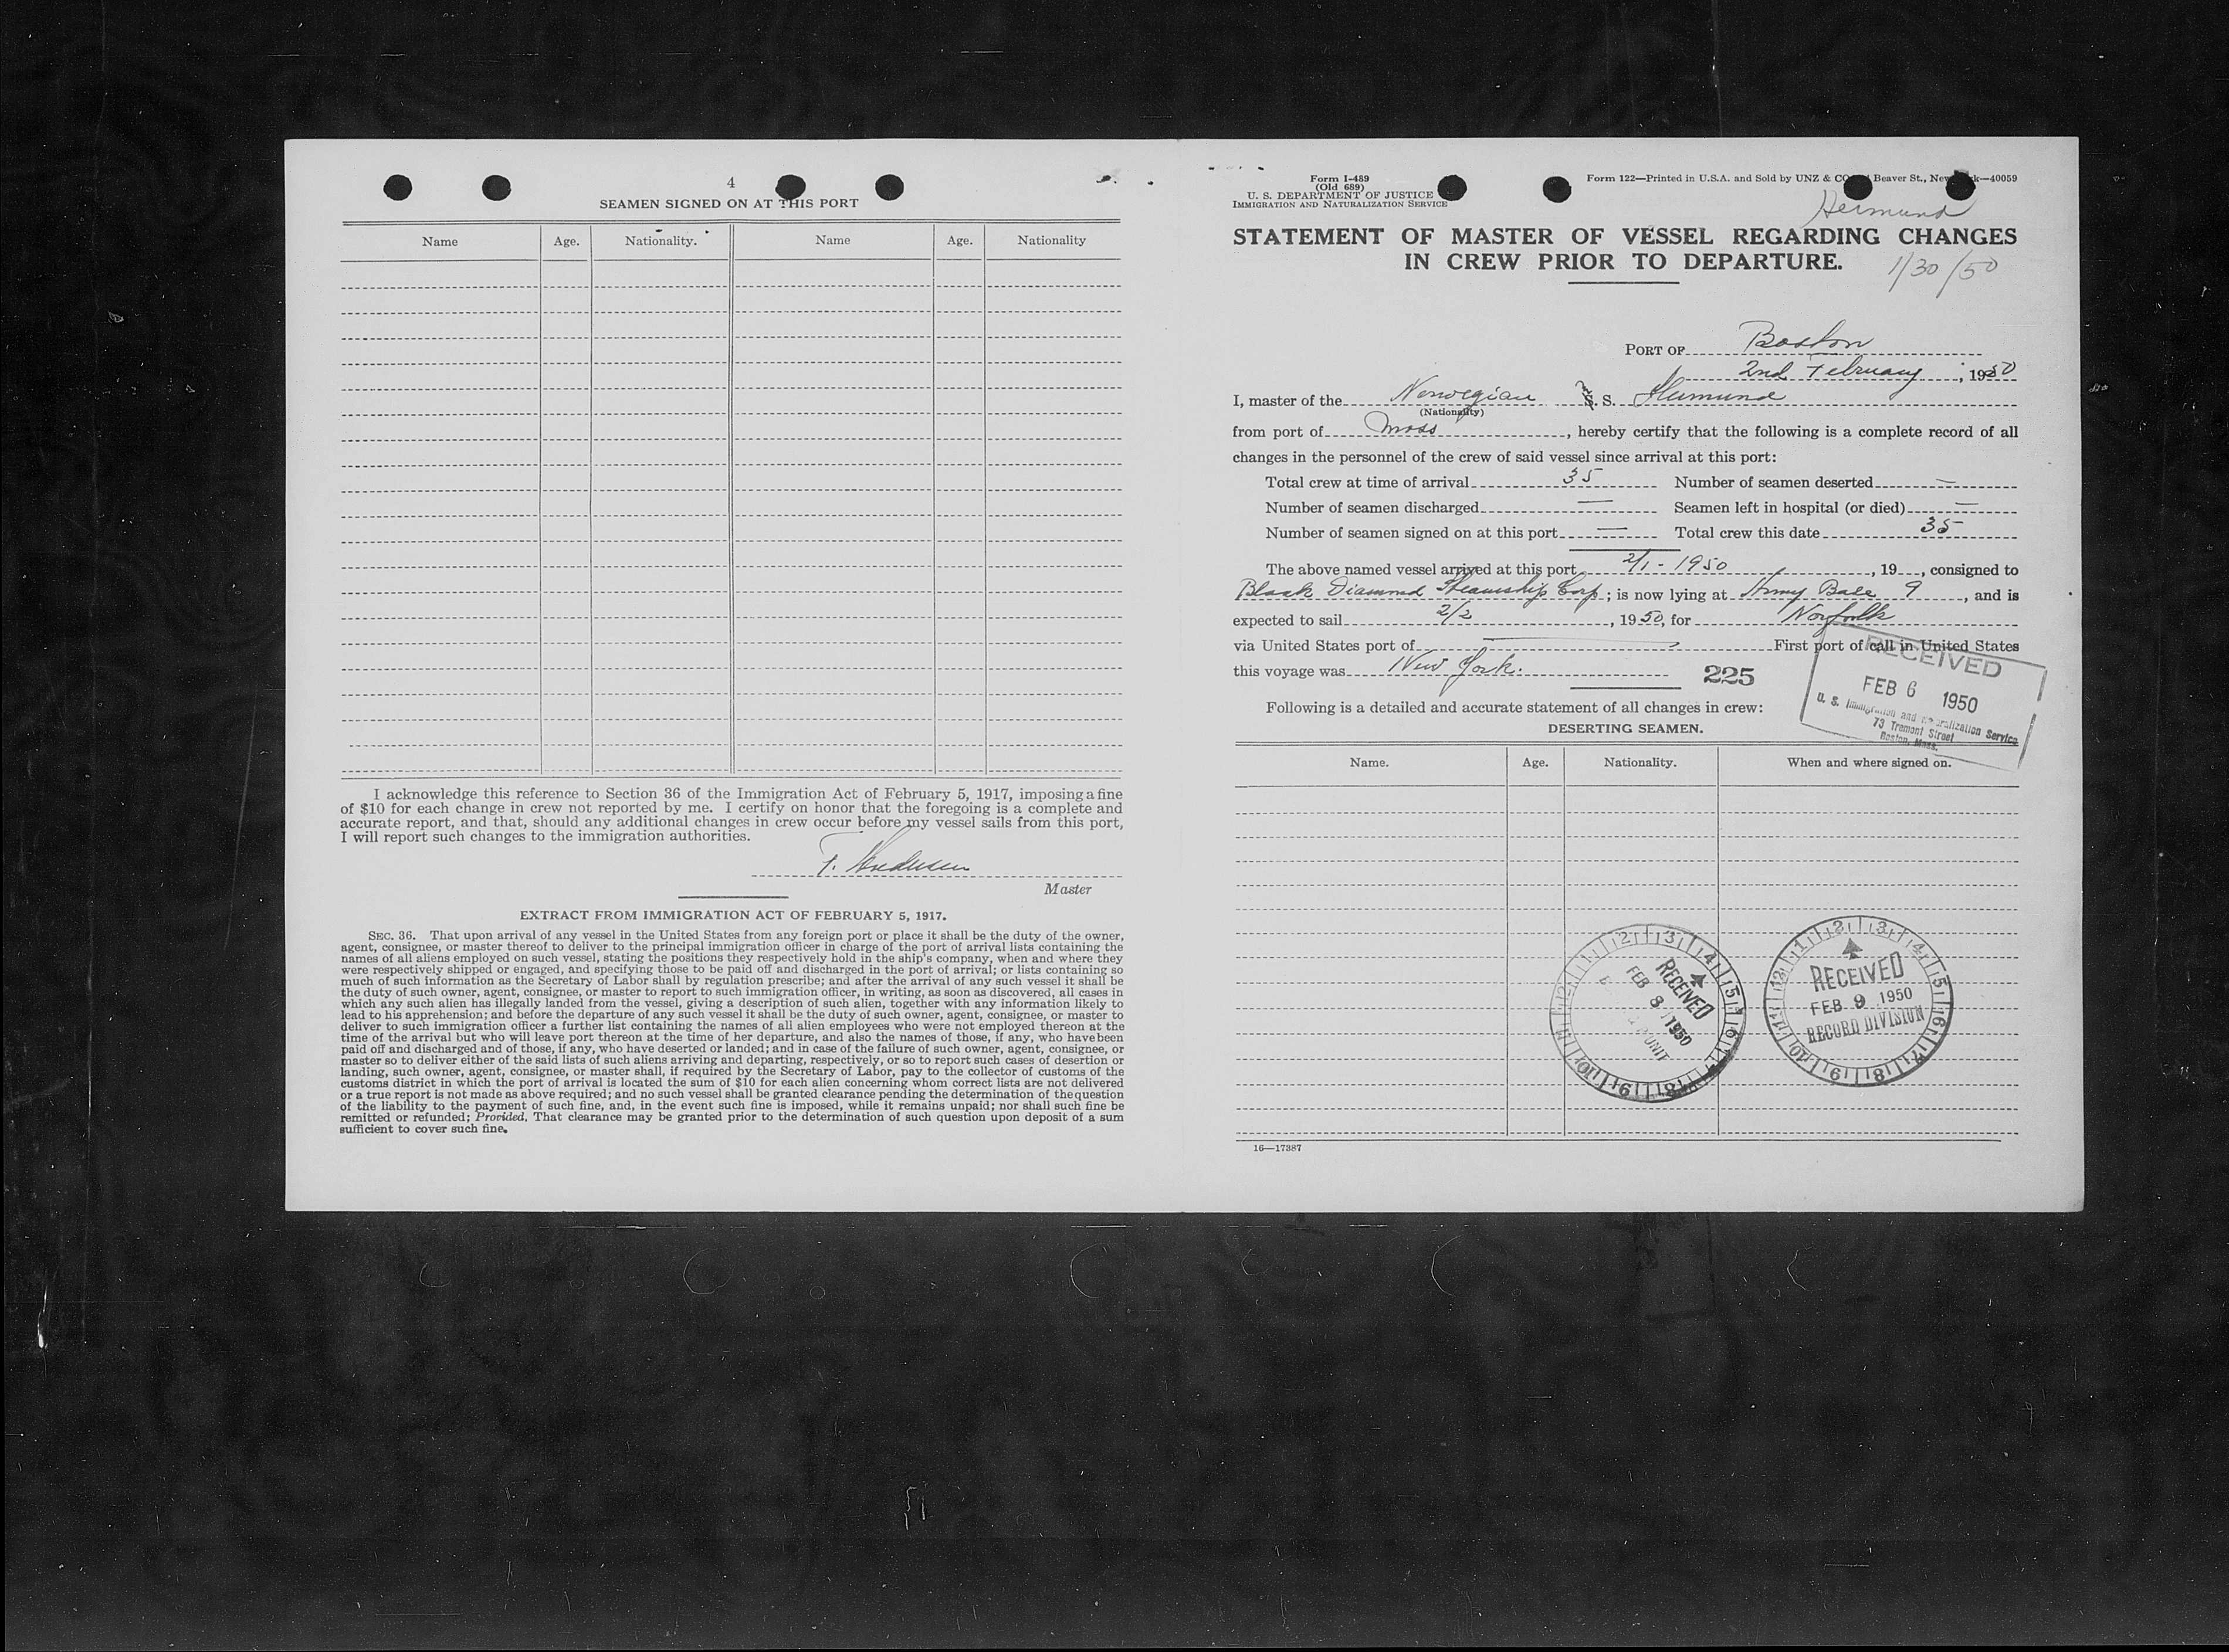 4
SEAMEN SIGNED ON AT THIS PORT
Name Age. Nationality. Name Age. Nationality
I acknowledge this reference to Section 36 of the Immigration Act of February 5, 1917, imposing a fine
of $10 for each change in crew not reported by me. I certify on honor that the foregoing is a complete and
accurate report, and that, should any additional changes in crew occur before my vessel sails from this port,
I will report such changes to the immigration authorities.
Master
EXTRACT FROM IMMIGRATION ACT OF FEBRUARY 5, 1917.
SEC. 36. That upon arrival of any vessel in the United States from any foreign port or place it shall be the duty of the owner,
agent, consignee, or master thereof to deliver to the principal immigration officer in charge of the port of arrival lists containing the
names of all aliens employed on such vessel, stating the positions they respectively hold in the ship's company, when and where they
were respectively shipped or engaged, and specifying those to be paid off and discharged in the port of arrival; or lists containing so
much of such information as the Secretary of Labor shall by regulation prescribe; and after the arrival of any such vessel it shall be
the duty of such owner, agent, consignee, or master to report to such immigration officer, in writing, as soon as discovered, all cases in
which any such alien has illegally landed from the vessel, giving a description of such alien, together with any information likely to
lead to his apprehension; and before the departure of any such vessel it shall be the duty of such owner, agent, consignee, or master to
deliver to such immigration officer a further list containing the names of all alien employees who were not employed thereon at the
time of the arrival but who will leave port thereon at the time of her departure, and also the names of those, if any, who have been
paid off and discharged and of those, if any, who have deserted or landed; and in case of the failure of such owner, agent, consignee, or
master so to deliver either of the said lists of such aliens arriving and departing, respectively, or so to report such cases of desertion or
landing, such owner, agent, consignee, or master shall, if required by the Secretary of Labor, pay to the collector of customs of the
customs district in which the port of arrival is located the sum of $10 for each alien concerning whom correct lists are not delivered
or a true report is not made as above required; and no such vessel shall be granted clearance pending the determination of the question
of the liability to the payment of such fine, and, in the event such fine is imposed, while it remains unpaid; nor shall such fine be
remitted or refunded; Provided, That clearance may be granted prior to the determination of such question upon deposit of a sum
sufficient to cover such fine.
Form I-489
(Old 689)
U. S. DEPARTMENT OF JUSTICE
IMMIGRATION AND NATURALIZATION SERVICE
Form 122—Printed in U.S.A. and Sold by UNZ & CO Beaver St., New —40059
Hermund
STATEMENT OF MASTER OF VESSEL REGARDING CHANGES
IN CREW PRIOR TO DEPARTURE.
1/30/50
PORT OF Boston
2nd February, 1950
I, master of the Norwegian S. Hermund
(Nationality)
from port of Moss, hereby certify that the following is a complete record of all
changes in the personnel of the crew of said vessel since arrival at this port:
Total crew at time of arrival 35 Number of seamen deserted —
Number of seamen discharged — Seamen left in hospital (or died) —
Number of seamen signed on at this port — Total crew this date 35
The above named vessel arrived at this port 2/1-1950, 19 , consigned to
Black Diamond Steamship Corp; is now lying at Army Base 9, and is
expected to sail 2/2, 1950, for Norfolk
via United States port of — First port of call in United States
this voyage was New York.
225
RECEIVED
FEB 6 1950
U. S. Immigration and Naturalization Service
73 Tremont Street
Boston, Mass.
Following is a detailed and accurate statement of all changes in crew:
DESERTING SEAMEN.
Name. Age. Nationality. When and where signed on.
RECEIVED
FEB 8 1950
UNIT
RECEIVED
FEB 9 1950
RECORD DIVISION
16—17387